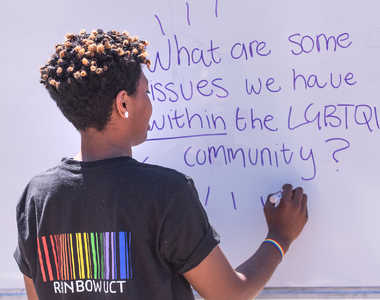 What are some
issues we have
within the LGBTQI
community?
RAINBOWUCT